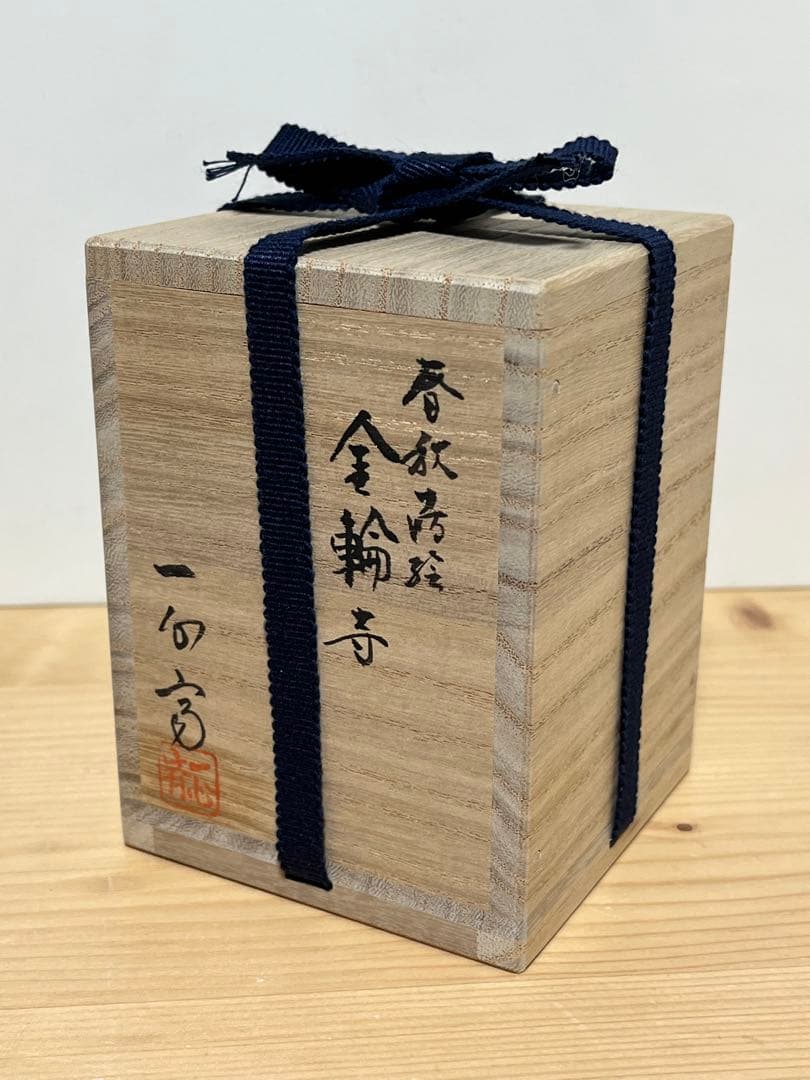 春秋蒔絵
金輪寺
一